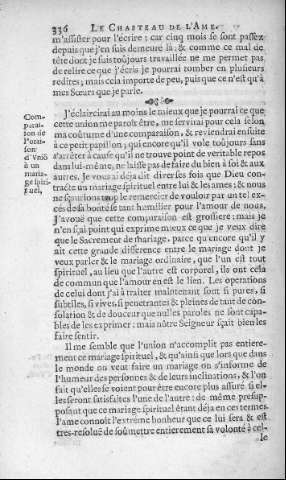 336 LE CHASTEAU DE L'AME.
m'assister pour l'écrire : car cinq mois se sont passez
depuis que j'en suis demeuré là : & comme ce mal de
tête dont je suis toûjours travaillée ne me permet pas
de relire ce que j'écris je pourrai tomber en plusieurs
redites ; mais cela importe de peu, puis que ce n'est qu'à
mes Sœurs que je parle.
Com-
parai-
son de
l'orai-
son
d'Uniõ
à un
maria-
ge spiri-
tuel.
J'éclaircirai au moins le mieux que je pourrai ce que
cette union me paroît être, me servirai pour cela selon
ma coûtume d'une comparaison, & reviendrai ensuite
à ce petit papillon, qui encore qu'il vole toûjours sans
s'arrêter à cause qu'il ne trouve point de veritable repos
dans lui-même, ne laisse pas de faire du bien à soi & aux
autres. Je vous ai déja dit diverses fois que Dieu con-
tracte un mariage spirituel entre lui & les ames : & nous
ne sçaurions trop le remercier de vouloir par un tel ex-
cés de sa bonté se tant humilier pour l'amour de nous.
J'avouë que cette comparaison est grossiere : mais je
n'en sçai point qui exprime mieux ce que je veux dire
que le Sacrement de mariage, parce qu'encore qu'il y
ait cette grande difference entre le mariage dont je
veux parler & le mariage ordinaire, que l'un est tout
spirituel, au lieu que l'autre est corporel, ils ont cela
de commun que l'amour en est le lien. Les operations
de celui dont j'ai à traiter maintenant sont si pures, si
subtiles, si vives, si penetrantes & pleines de tant de con-
solation & de douceur que nulles paroles ne sont capa-
bles de les exprimer : mais nôtre Seigneur sçait bien les
faire sentir.
Il me semble que l'union n'accomplit pas entiere-
ment ce mariage spirituel, & qu'ainsi que lors que dans
le monde on veut faire un mariage on s'informe de
l'humeur des personnes & de leurs inclinations, & l'on
fait qu'elles se voient pour être encore plus assuré si el-
les seront satisfaites l'une de l'autre : de même presup-
posant que ce mariage spirituel étant déja en ces termes,
l'ame connoît l'extrême bonheur que ce lui sera & est
tres-resoluë de soûmettre entierement sa volonté à cel-
le